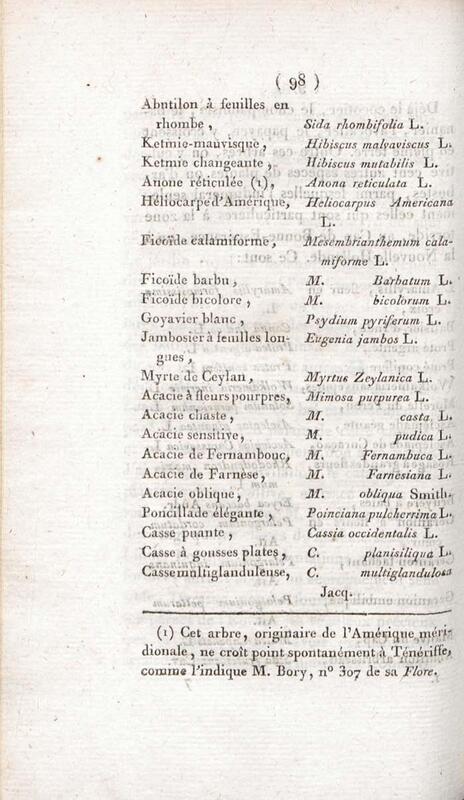 ( 98 )
Abutilon à feuilles en
rhombe , Sida rhombifolia L.
Ketmie-mauvisque, Hibiscus malvaviscus L.
Ketmie changeante , Hibiscus mutabilis L.
Anone réticulée (1), Anona reticulata L.
Héliocarpe d'Amérique, Heliocarpus Americana
L.
Ficoïde calamiforme, Mesembrianthemum cala-
miforme L.
Ficoïde barbu, M. Barbatum L.
Ficoïde bicolore , M. bicolorum L.
Goyavier blanc , Psydium pyriferum L.
Jambosier à feuilles lon- Eugenia jambos L.
gues ,
Myrte de Ceylan, Myrtus Zeylanica L.
Acacie à fleurs pourpres, Mimosa purpurea L.
Acacie chaste , M. casta L.
Acacie sensitive, M. pudica L.
Acacie de Fernambouc, M. Fernambuca L.
Acacie de Farnèse, M. Farnesiana L.
Acacie oblique, M. obliqua Smith.
Poncillade élégante , Poinciana pulcherrima L.
Casse puante , Cassia occidentalis L.
Casse à gousses plates, C. planisiliqua L.
Casse multiglanduleuse, C. multiglandulosa
Jacq.
(1) Cet arbre, originaire de l'Amérique méri-
dionale, ne croît point spontanément à Ténériffe,
comme l'indique M. Bory, n° 307 de sa Flore.